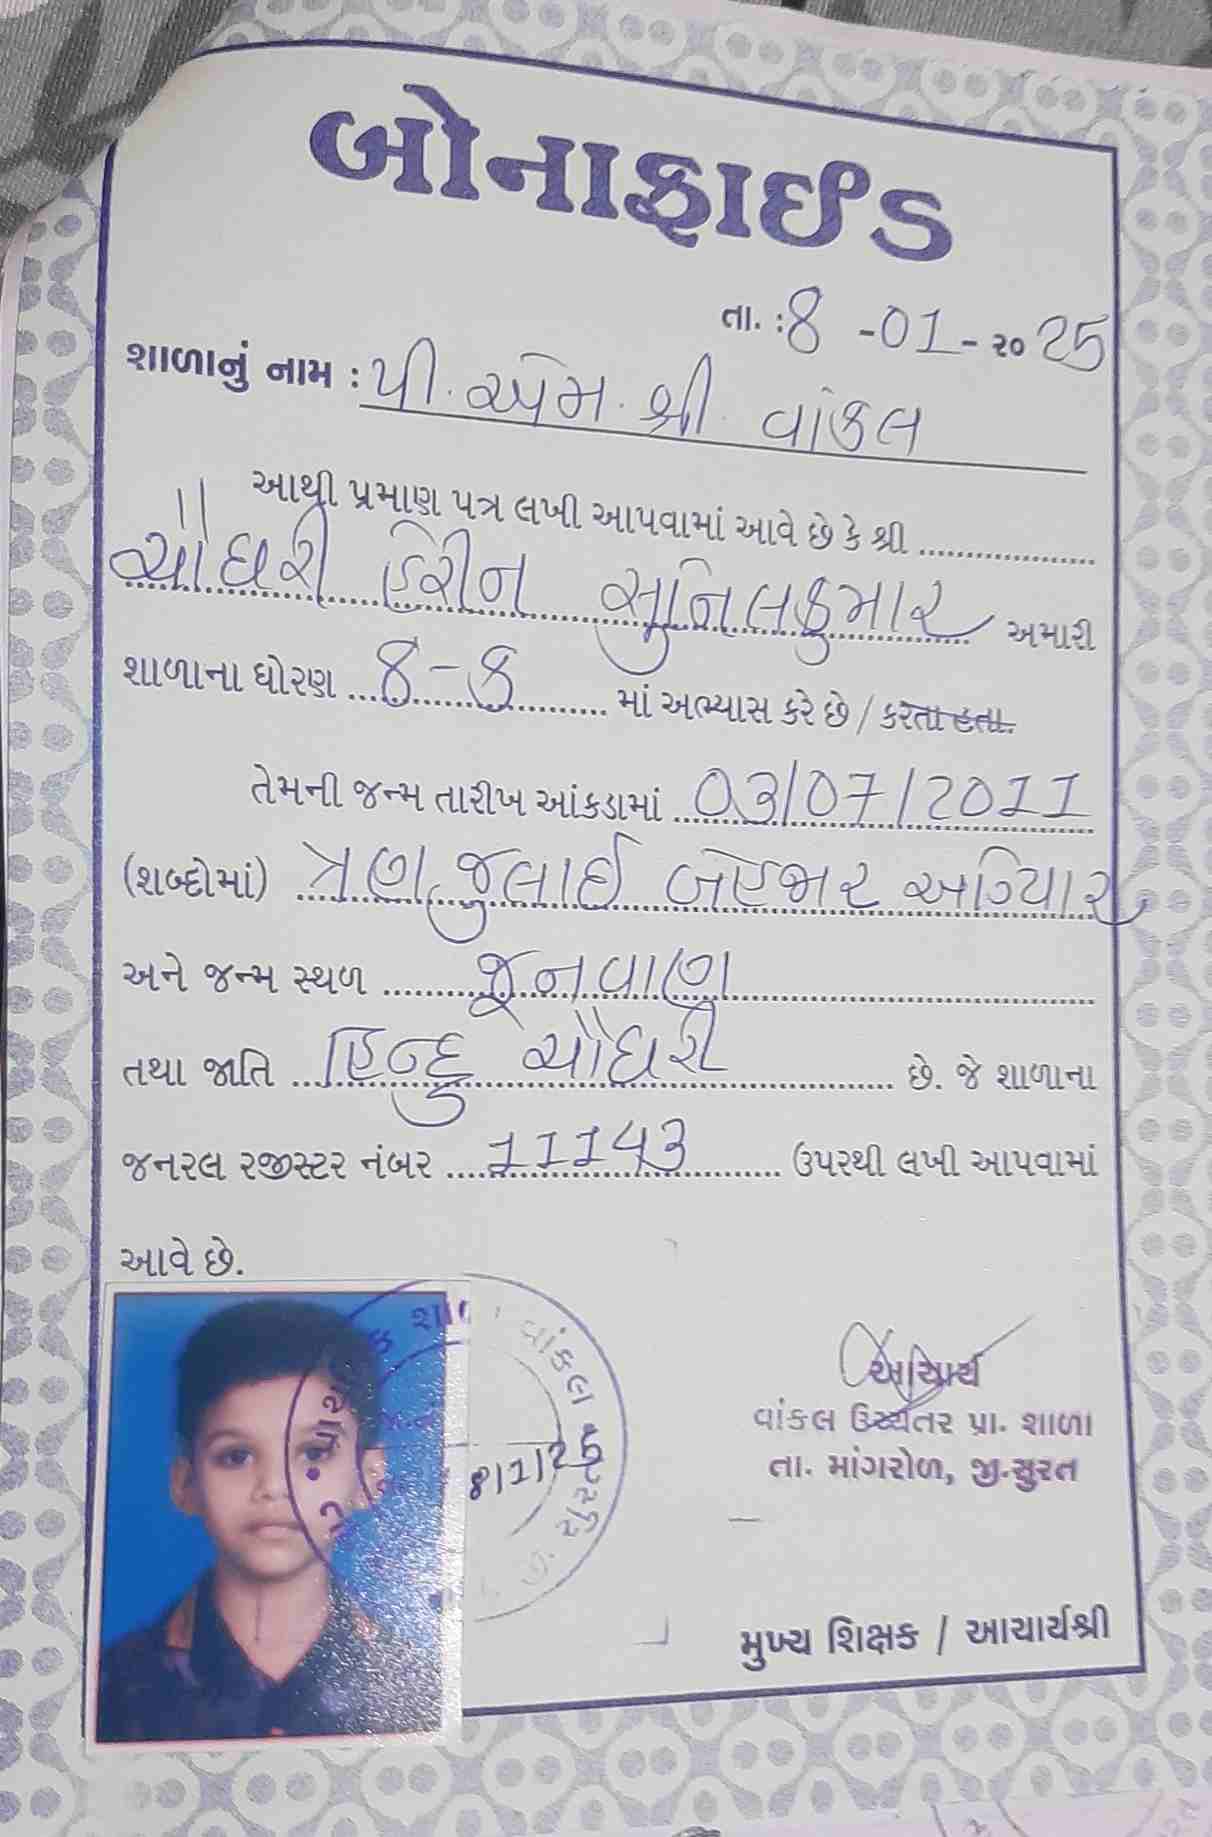 બોનાફાઈડ
તા. : 8 -01- ૨૦ 25
શાળાનું નામ : પી. એમ. શ્રી. વાંકલ
આથી પ્રમાણ પત્ર લખી આપવામાં આવે છે કે શ્રી
ચૌધરી હેરીન સુનિલકુમાર અમારી
શાળાના ધોરણ 8-ક માં અભ્યાસ કરે છે / કરતા હતા.
તેમની જન્મ તારીખ આંકડામાં 03/07/2011
(શબ્દોમાં) ત્રણ જુલાઈ બેહજાર અગિયાર
અને જન્મ સ્થળ જૂનવાણ
તથા જાતિ હિન્દુ ચૌધરી છે. જે શાળાના
જનરલ રજીસ્ટર નંબર 11143 ઉપરથી લખી આપવામાં
આવે છે.
વાંકલ
8/1/25
આચાર્ય
વાંકલ ઉચ્ચતર પ્રા. શાળા
તા. માંગરોળ, જી.સુરત
મુખ્ય શિક્ષક / આચાર્યશ્રી